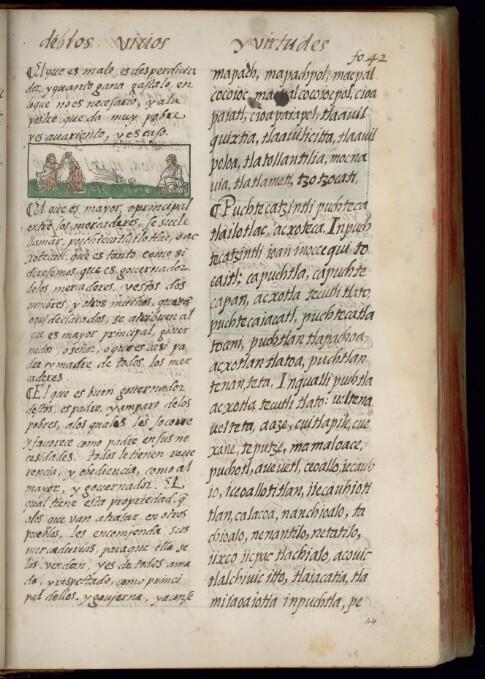 delos vicios y virtudes
fo 42
El que es malo, es desperdicia
dor, y quanto gana gastalo, en
loque no es necesario, y ala
postre queda muy pobre
y es auariento, y escaso.
El que es mayor, o principal
entre los mercaderes, se suele
llamar, puchtecatlailotlac, o ac
xotecatl: que es tanto como si
dixesemos, que es gouernador
delos mercaderes. y estos dos
nombres, y otros muchos, que estan
aqui declarados, se atribuien al
que es mayor principal, gouer
nador, o señor, o que es casi pa
dre y madre de todos los mer
caderes.
El que es buen gouernador
destos, es padre, y amparo delos
pobres, alos quales les socorre
y fauorece como padre en sus ne
cesidades. todos le tienen reue
rencia, y obediencia, como al
mayor, y gouernador. El
qual tiene esta propriedad, q̄
alos que van atratar, en otros
pueblos, les encomienda sus
mercaderias, paraque ella se
las vendan, y es de todos ama
do, y respectado, como princi
pal dellos. y gouierna, y aconse
mapach, mapachpol, macpal
cocoioc, macpalcocoiocpol, cioa
paiatl, cioapaiapol, tlaauil
quixtia, tlaauilicitta, tlaauil
peloa, tlatollantilia, mocna
uia, tlatlameti, tzotzocati.
Puchtecatzintli puchteca
tlailotlac, acxoteca. Inpuch
tecatzintli ioan inoccequi to
caitl: capuchtla, capuchte
capan, acxotla tecutli tlato,
puchtecaiacatl, puchtecatla
toani, puchtlan tlapachoa,
acxotlan tlatoa, puchtlan
tenan teta. Inqualli puchtla
acxotla tecutli tlato: ueltena
uelteta, aaze, cuitlapile, cue
xane, teputze, mamaloace,
puchotl, aueuetl, ceoallo, iecauh
io, iceoallotitlan, iiecauhioti
tlan, calacoa, nanchioalo, ta
chioalo, nenantilo, netatilo,
iixco iicpac tlachialo, acouic
tlalchiuic itto, tlaiacatia, tla
misaoaiotia inpuchtla, pe
44